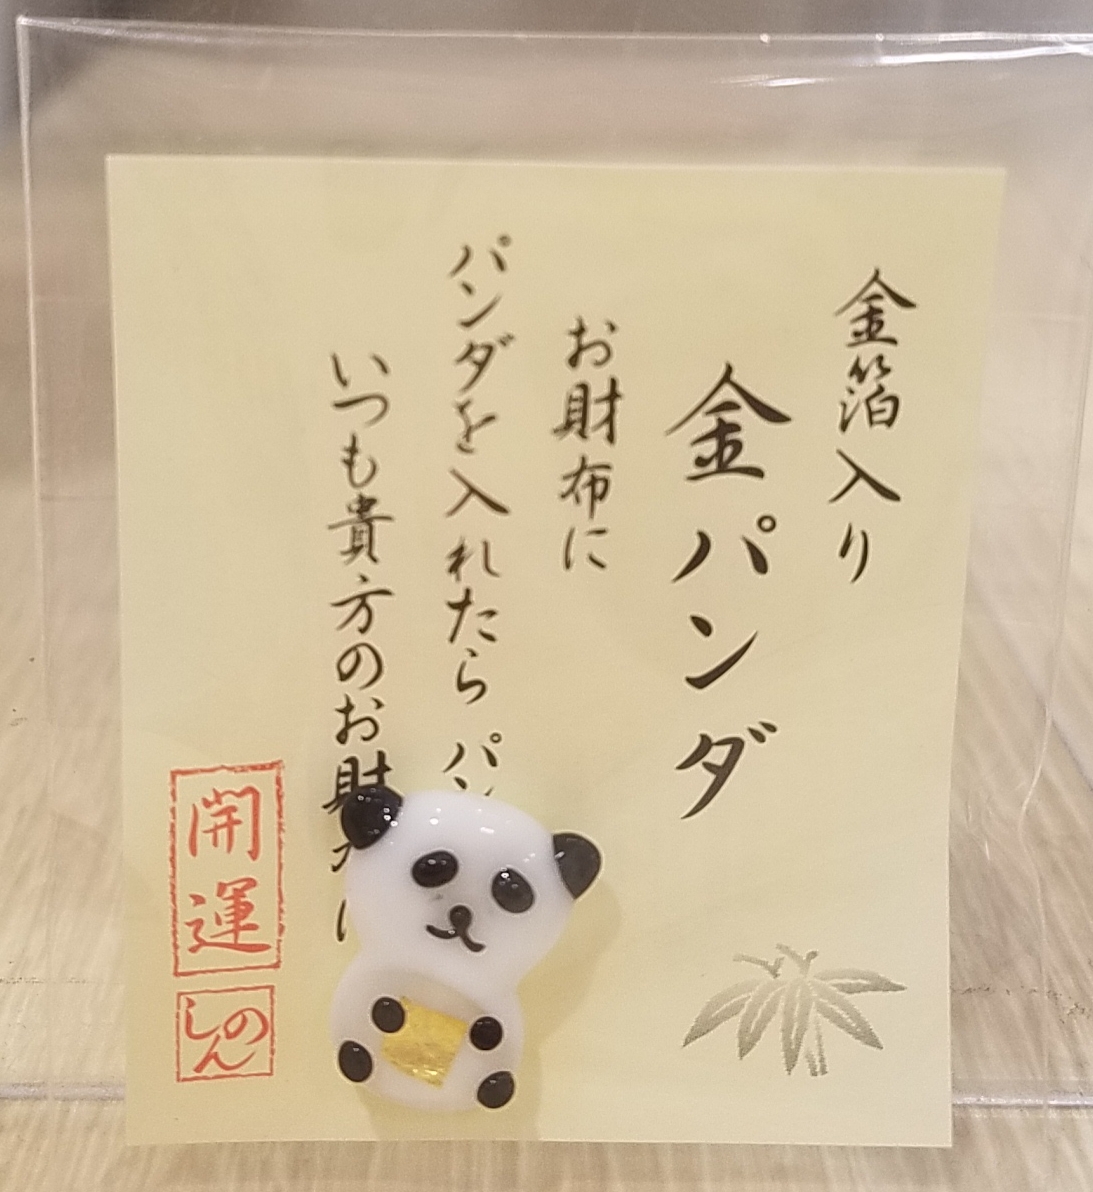 金箔入り
金パンダ
お財布に
パンダを入れたら パン
いつも貴方のお財布に
開運
しのん